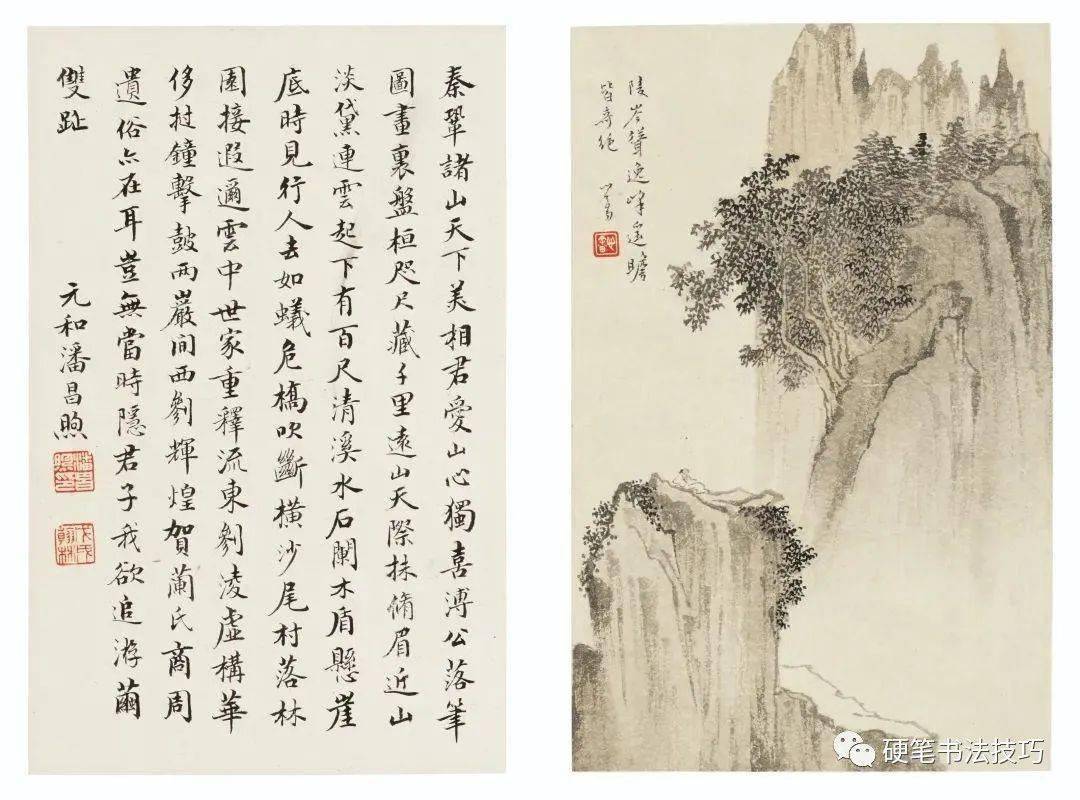 秦鞏諸山天下美相君愛山心獨喜溥公落筆
圖畫裏盤桓咫尺藏千里遠山天際抹脩眉近山
淡黛連雲起下有百尺清溪水石闌木盾懸崖
底時見行人去如蟻危橋吹斷橫沙尾村落林
園接遐邇雲中世家重釋流東剎淩虛構華
侈挝鐘擊鼓兩巖間西剎輝煌賀蘭氏商周
遺俗亦在耳豈無當時隱君子我欲追游繭
雙趾
元和潘昌煦
潘昌煦印
戊戌翰林
陵岑聳逸峰遙瞻
皆奇絕 心畬
硬笔书法技巧